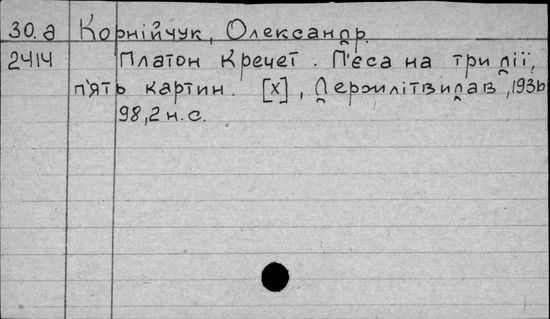 30.д Корнійчук, Олександр.
2414 Платон Кречет. П'єса на три дії,
п'ять картин. [х], Держлітвидав, 1936
98,2 н.с.